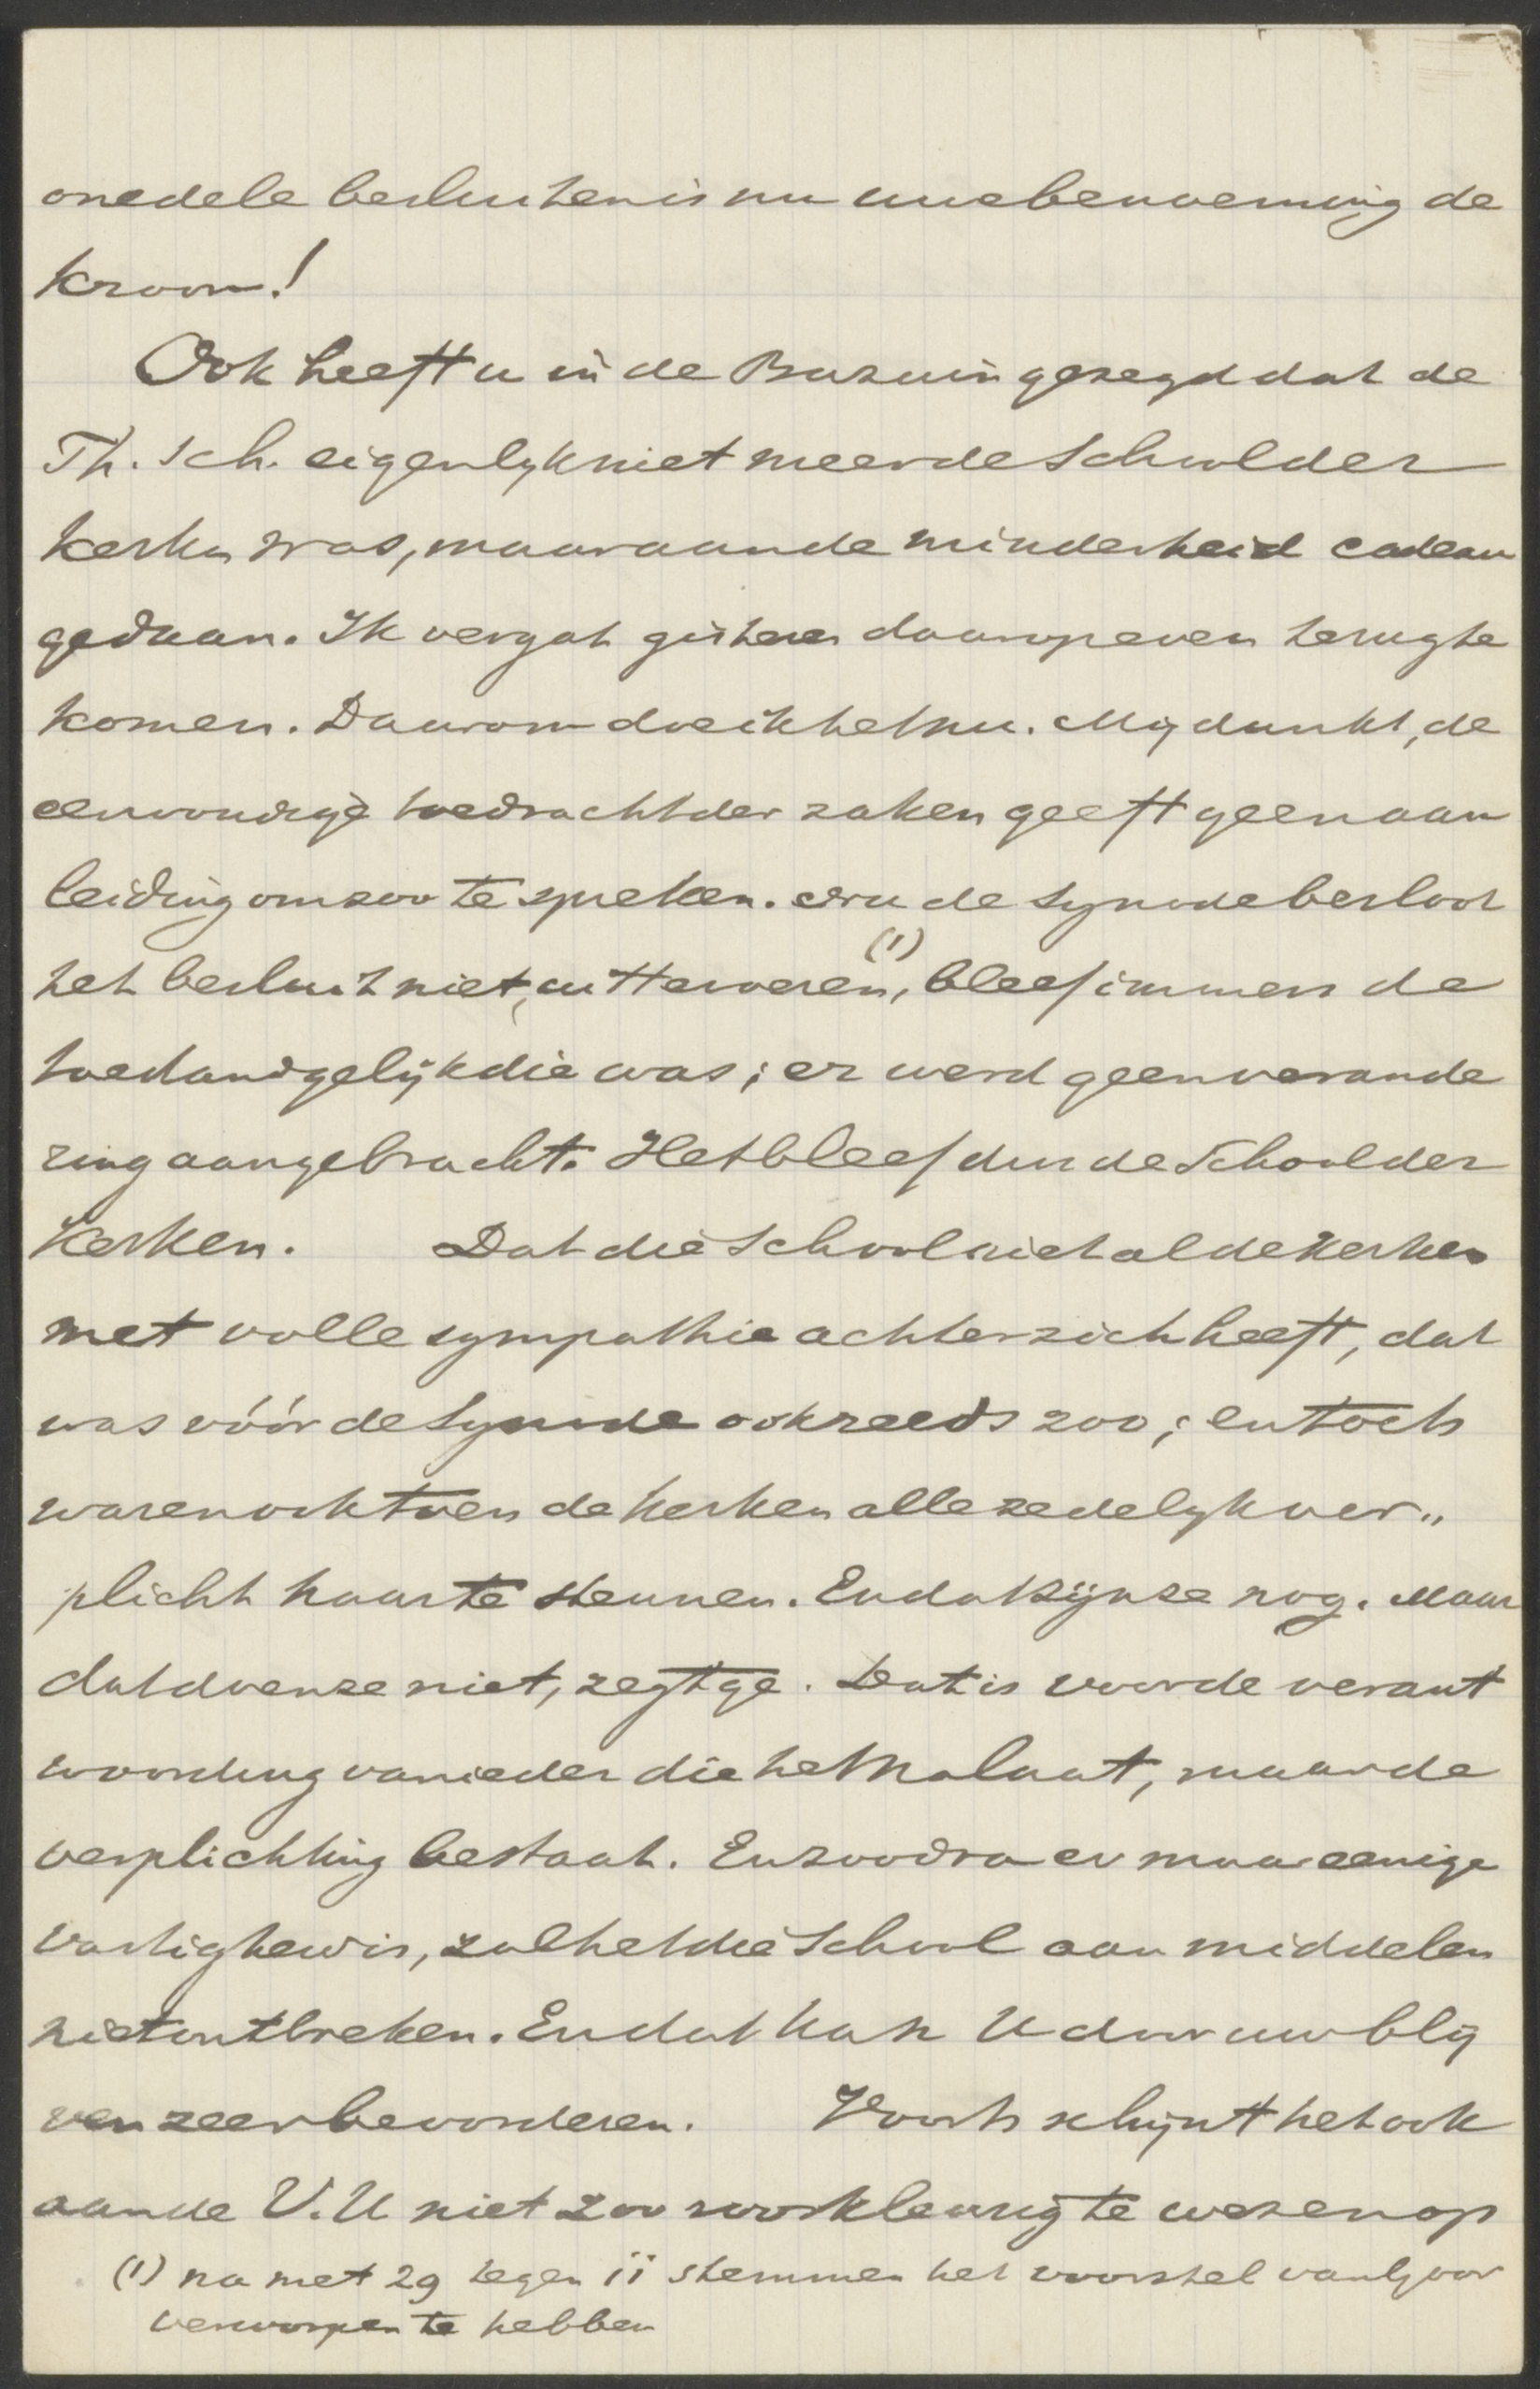 onedele besluiten is nu uwe benoeming de
kroon!
Ook heeft u in de Bazuin gezegd dat de
Th. Sch. eigenlyk niet meer de School der
kerken was, maar aan de minderheid cadeau
gedaan. Ik vergat gisteren daarop even terug te
komen. Daarom doe ik het nu. Mij dunkt, de
eenvoudige toedracht der zaken geeft geen aan
leiding om zoo te spreken. Nu de Synode besloot
het besluit niet uit te voeren, (1) bleef immers de
toestand gelijk die was; er werd geen verande
ring aangebracht. Het bleef dus de School der
Kerken. Dat die School niet al de Kerken
met volle sympathie achter zich heeft, dat
was vóór de Synode ook reeds zoo; en toch
waren ook toen de kerken alle zedelyk ver„
plicht haar te steunen. En dat zijn ze nog. Maar
dat doen ze niet, zegt ge. Dat is voor de verant
woording van ieder die het nalaat, maar de
verplichting bestaat. En zoodra er maar eenige
vastigheid is, zal het die School aan middelen
niet ontbreken. En dat kan U door uw blij
ven zeer bevorderen. Voorts schijnt het ook
aan de V.U niet zoo rooskleurig te wezen op
(1) na met 29 tegen 11 stemmen het voorstel van
verworpen te hebben